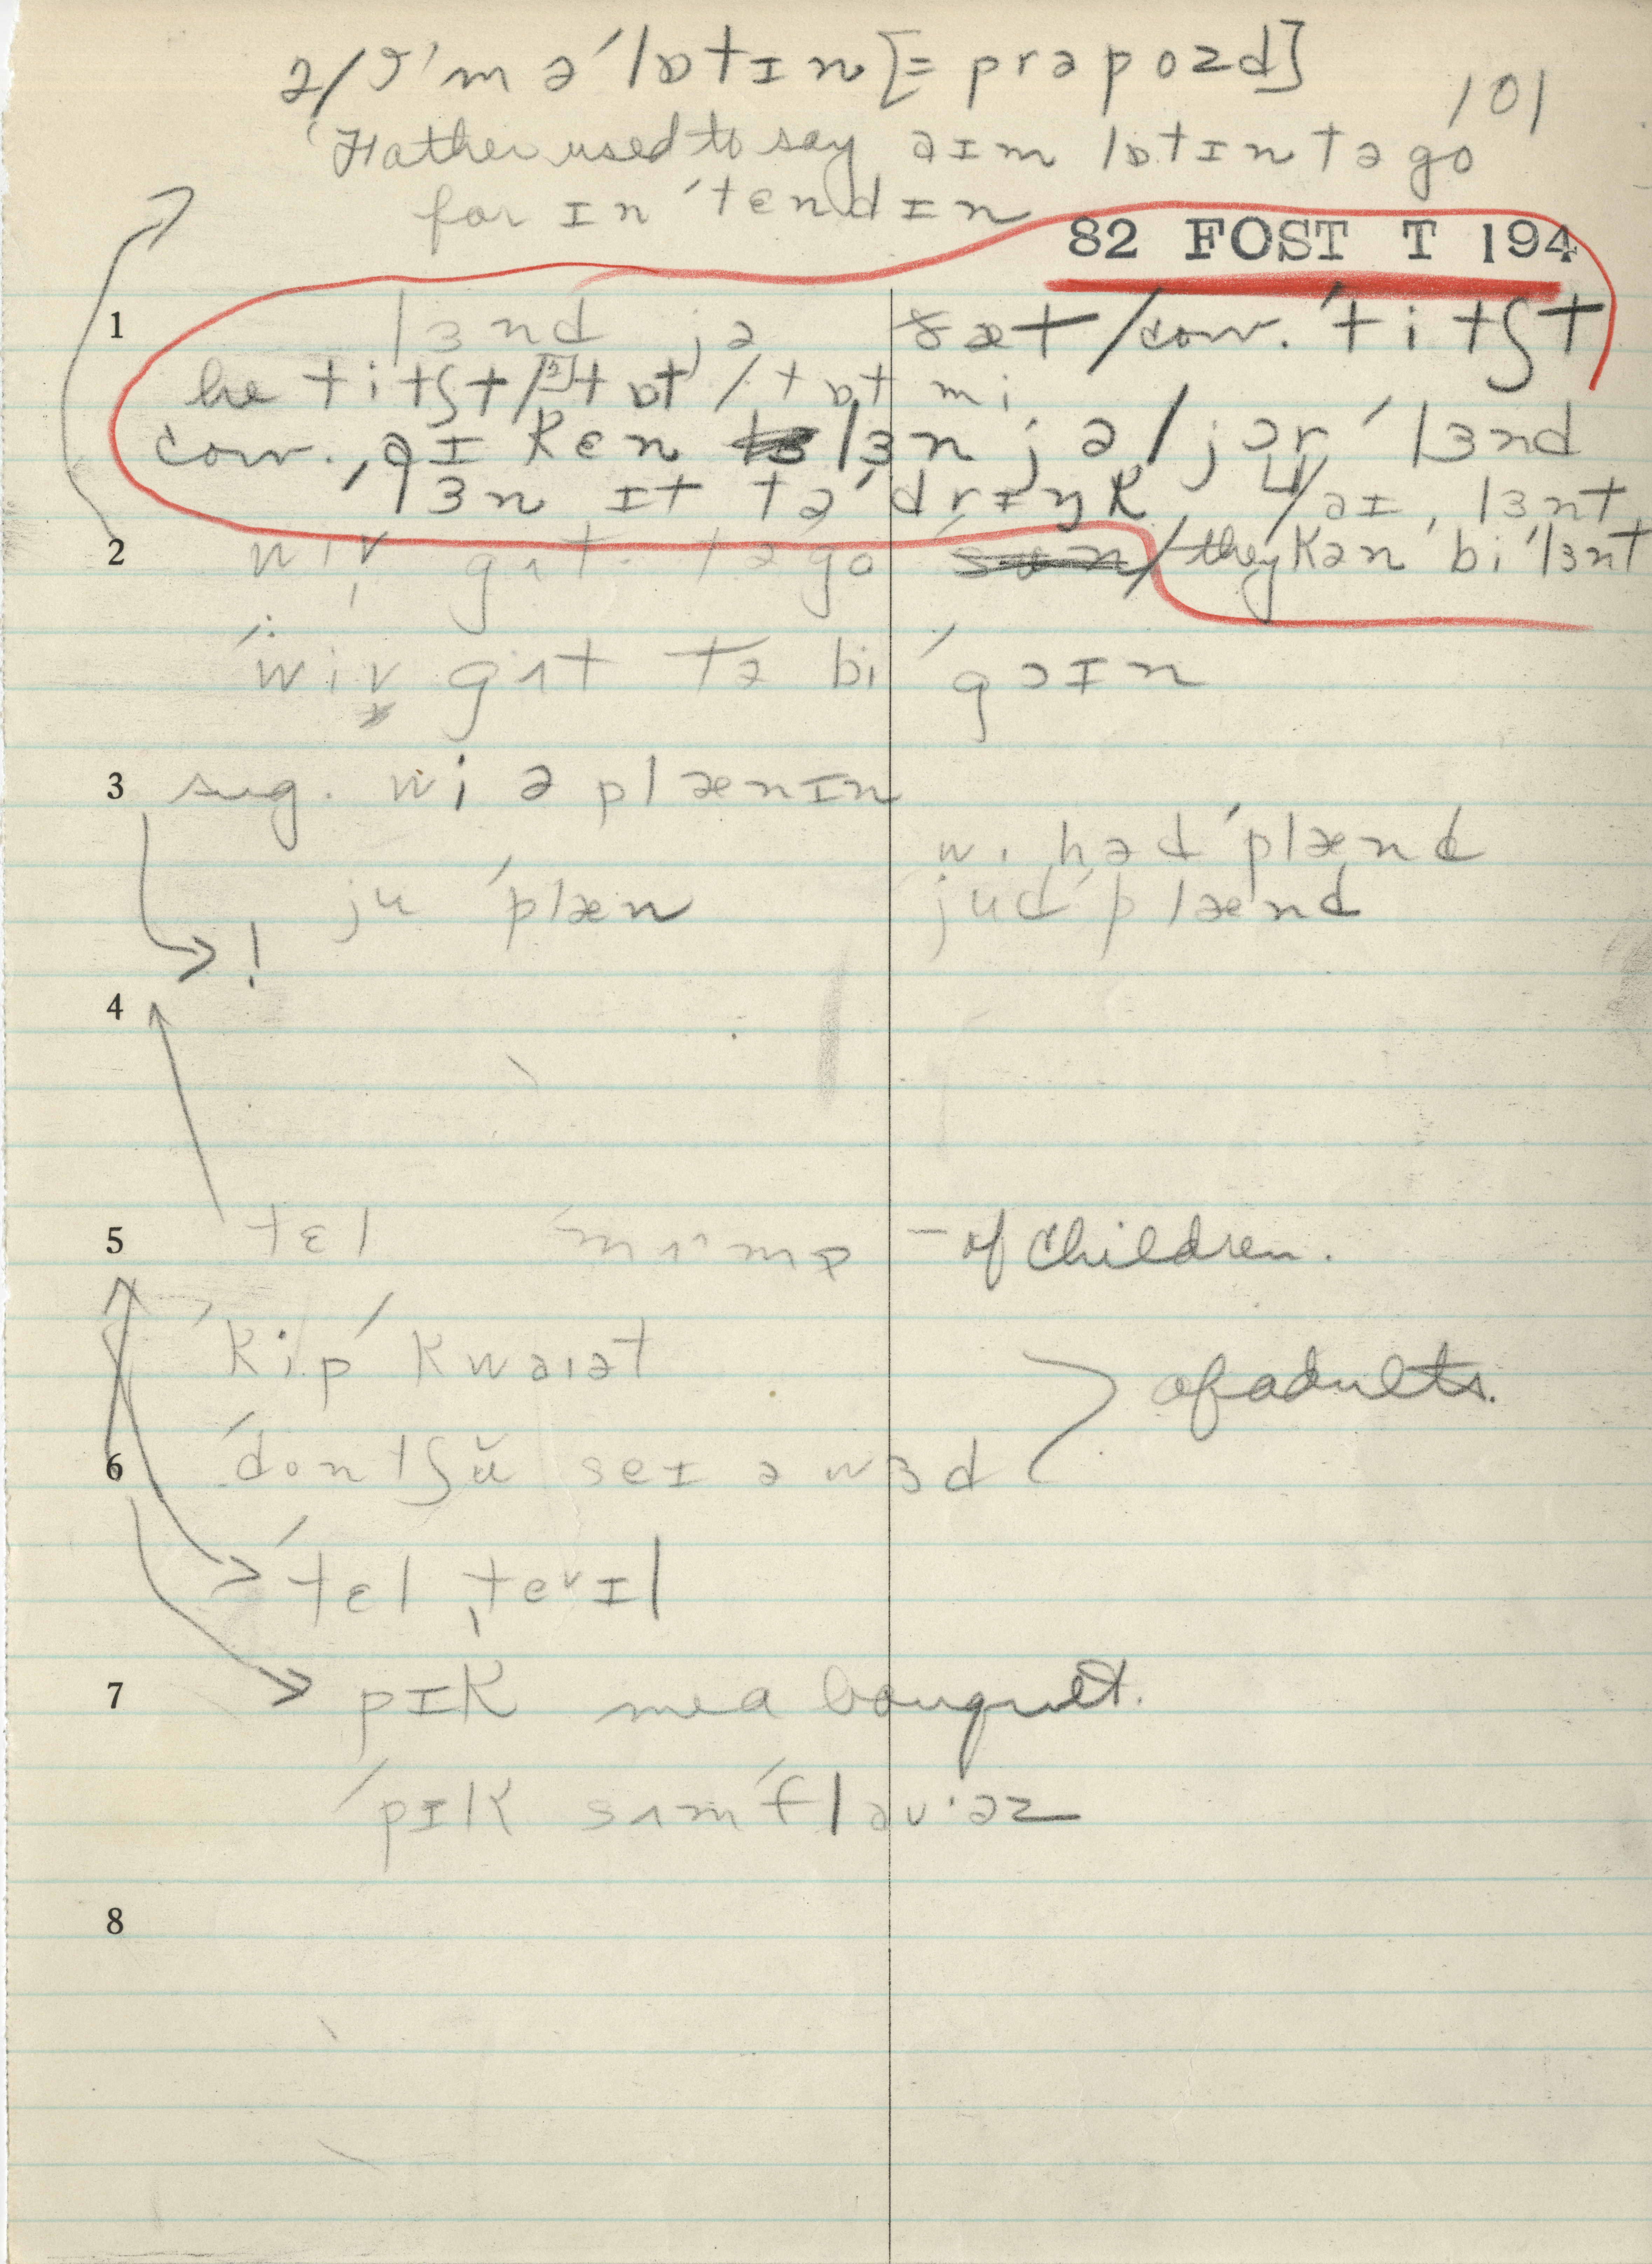 2/ɑ'm ə'lɒtɪn [= prəpozd]
101
'Father used to say aɪm lɒtɪn tə go
for ɪn'tɛndɪn
82 FOST T 194
1 lɜnd jə ðæt/conv. 'titʃt
he titʃt/tɒt/tɒt mi
conv. aɪ kɛn lɜn jə/jər 'lɜnd
lɜn ɪt tə'drɪŋk 4/aɪ lɜnt
2 wiv gʌt tə go / they kən bi 'lɜnt
'wiv gʌt tə bi 'gɔɪn
3 sug. wi ə plænɪn
wi həd 'plænd
ju 'plæn jud 'plænd
!
4
5 tɛl - of children.
'kip 'kwaɪət
of adults.
6 'dontʃŭ seɪ ə wɜd
'tɛl
7 pɪk me a bouquet.
'pɪk sʌm 'flaʊ·əz
8